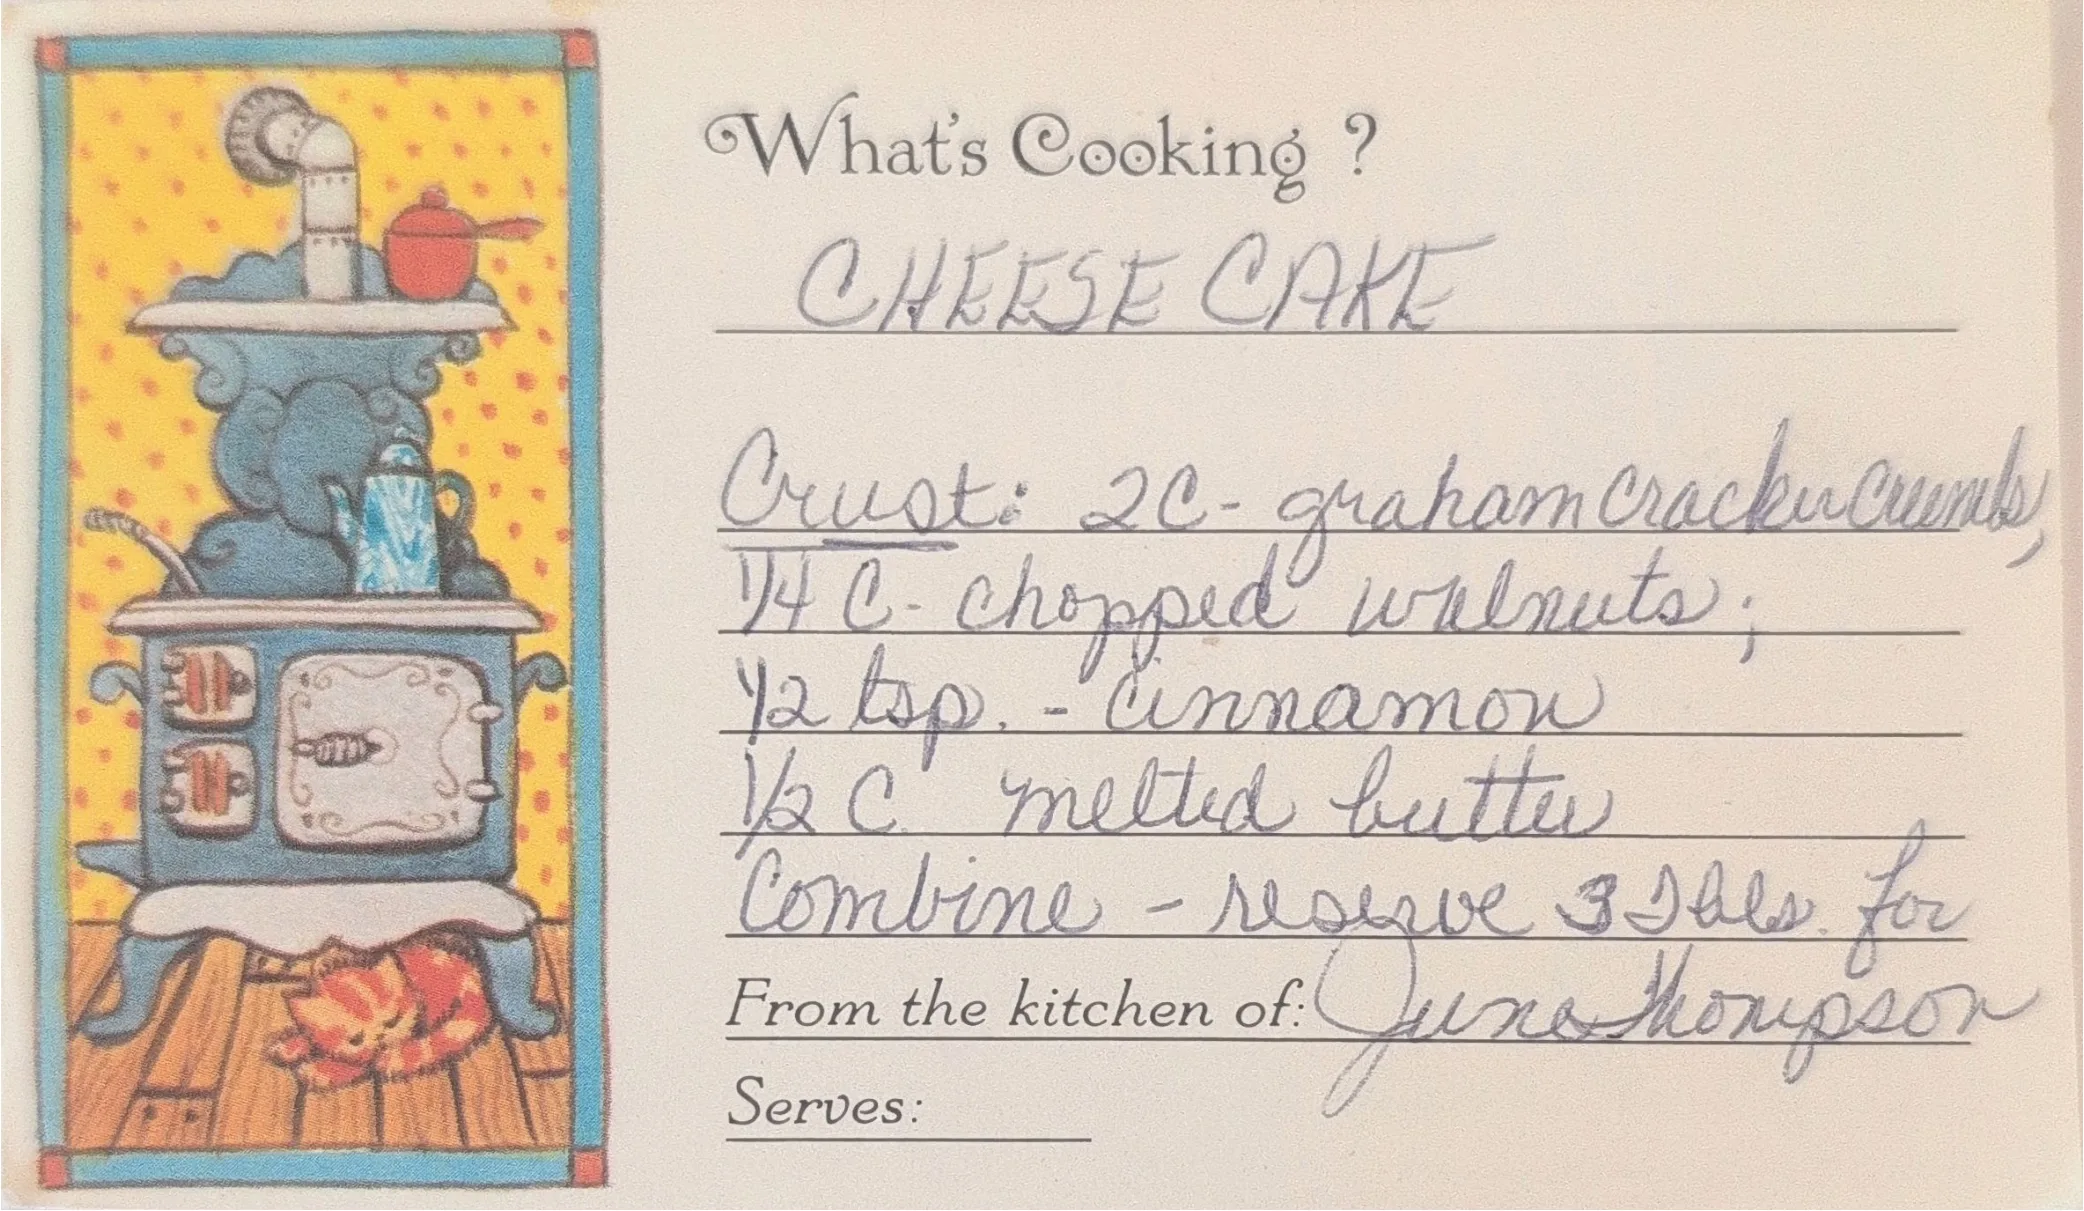 What's Cooking ?
CHEESE CAKE
Crust: 2C - graham cracker crumbs,
1/4 C - chopped walnuts;
1/2 tsp. - cinnamon
1/2 C melted butter
Combine - reserve 3 Tbls. for
From the kitchen of: June Thompson
Serves: